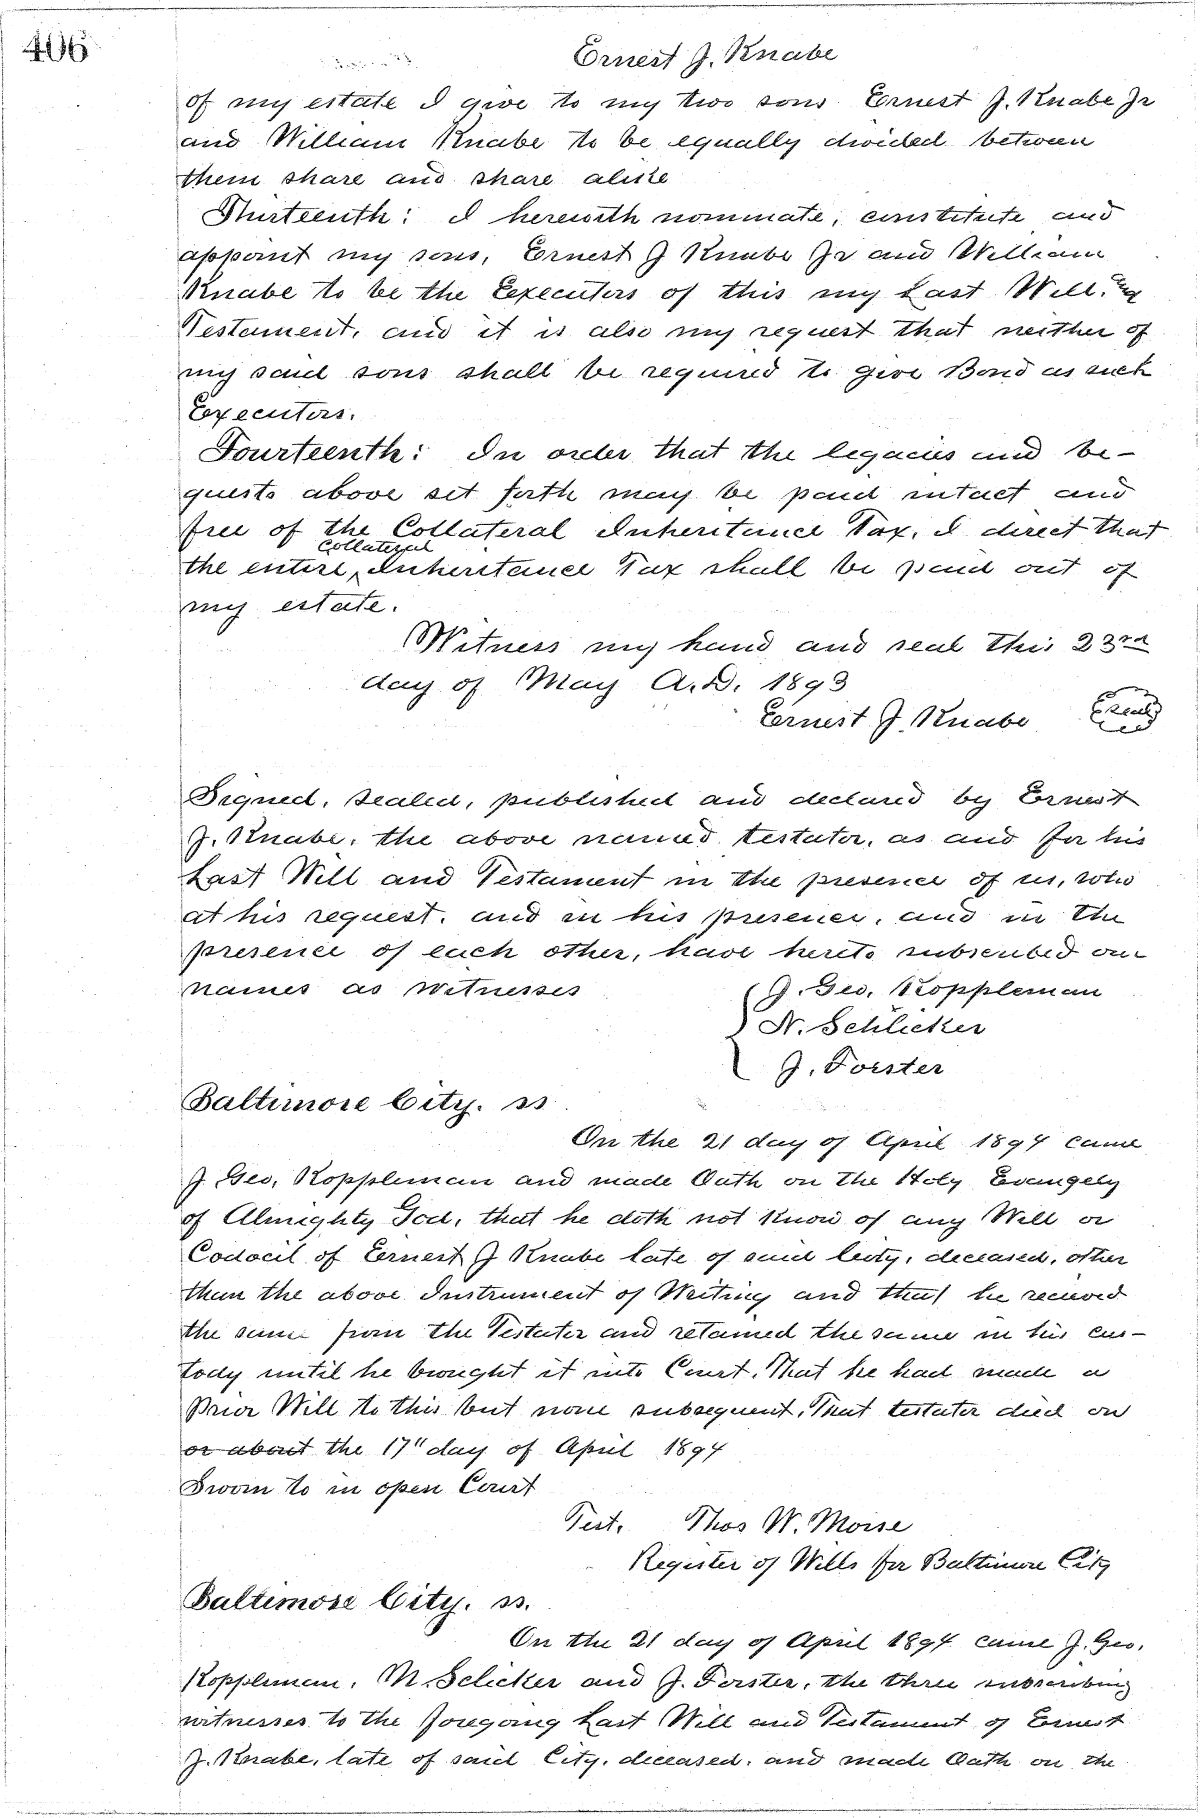 406
Ernest J. Knabe
of my estate I give to my two sons Ernest J. Knabe Jr
and William Knabe to be equally divided between
them share and share alike
Thirteenth: I herewith nominate, constitute and
appoint my sons, Ernest J Knabe Jr and William
Knabe to be the Executors of this my Last Will. and
Testament, and it is also my request that neither of
my said sons shall be required to give Bond as such
Executors.
Fourteenth: In order that the legacies and be-
quests above set forth may be paid intact and
free of the Collateral Inheritance Tax, I direct that
Collateral
the entire ^ Inheritance Tax shall be paid out of
my estate.
Witness my hand and seal this 23rd
day of May A.D. 1893
Ernest J. Knabe (Seal)
Signed, sealed, published and declared by Ernest
J. Knabe, the above named testator, as and for his
Last Will and Testament in the presence of us, who
at his request, and in his presence, and in the
presence of each other, have hereto subscribed our
names as witnesses J. Geo. Koppleman
N. Schlicker
J. Forster
Baltimore City. ss
On the 21 day of April 1894 came
J Geo, Koppleman and made Oath on the Holy Evangely
of Almighty God, that he doth not know of any Will or
Codocil of Ernest J Knabe late of said City, deceased, other
than the above Instrument of Writing and that he received
the same from the Testator and retained the same in his cus-
tody until he brought it into Court. That he had made a
Prior Will to this but none subsequent. That testator died on
or about the 17" day of April 1894
Sworn to in open Court
Test. Thos W. Morse
Register of Wills for Baltimore City
Baltimore City. ss.
On the 21 day of April 1894 came J. Geo.
Koppleman, N. Selicker and J. Forster, the three subscribing
witnesses to the foregoing Last Will and Testament of Ernest
J. Knabe, late of said City, deceased, and made Oath on the